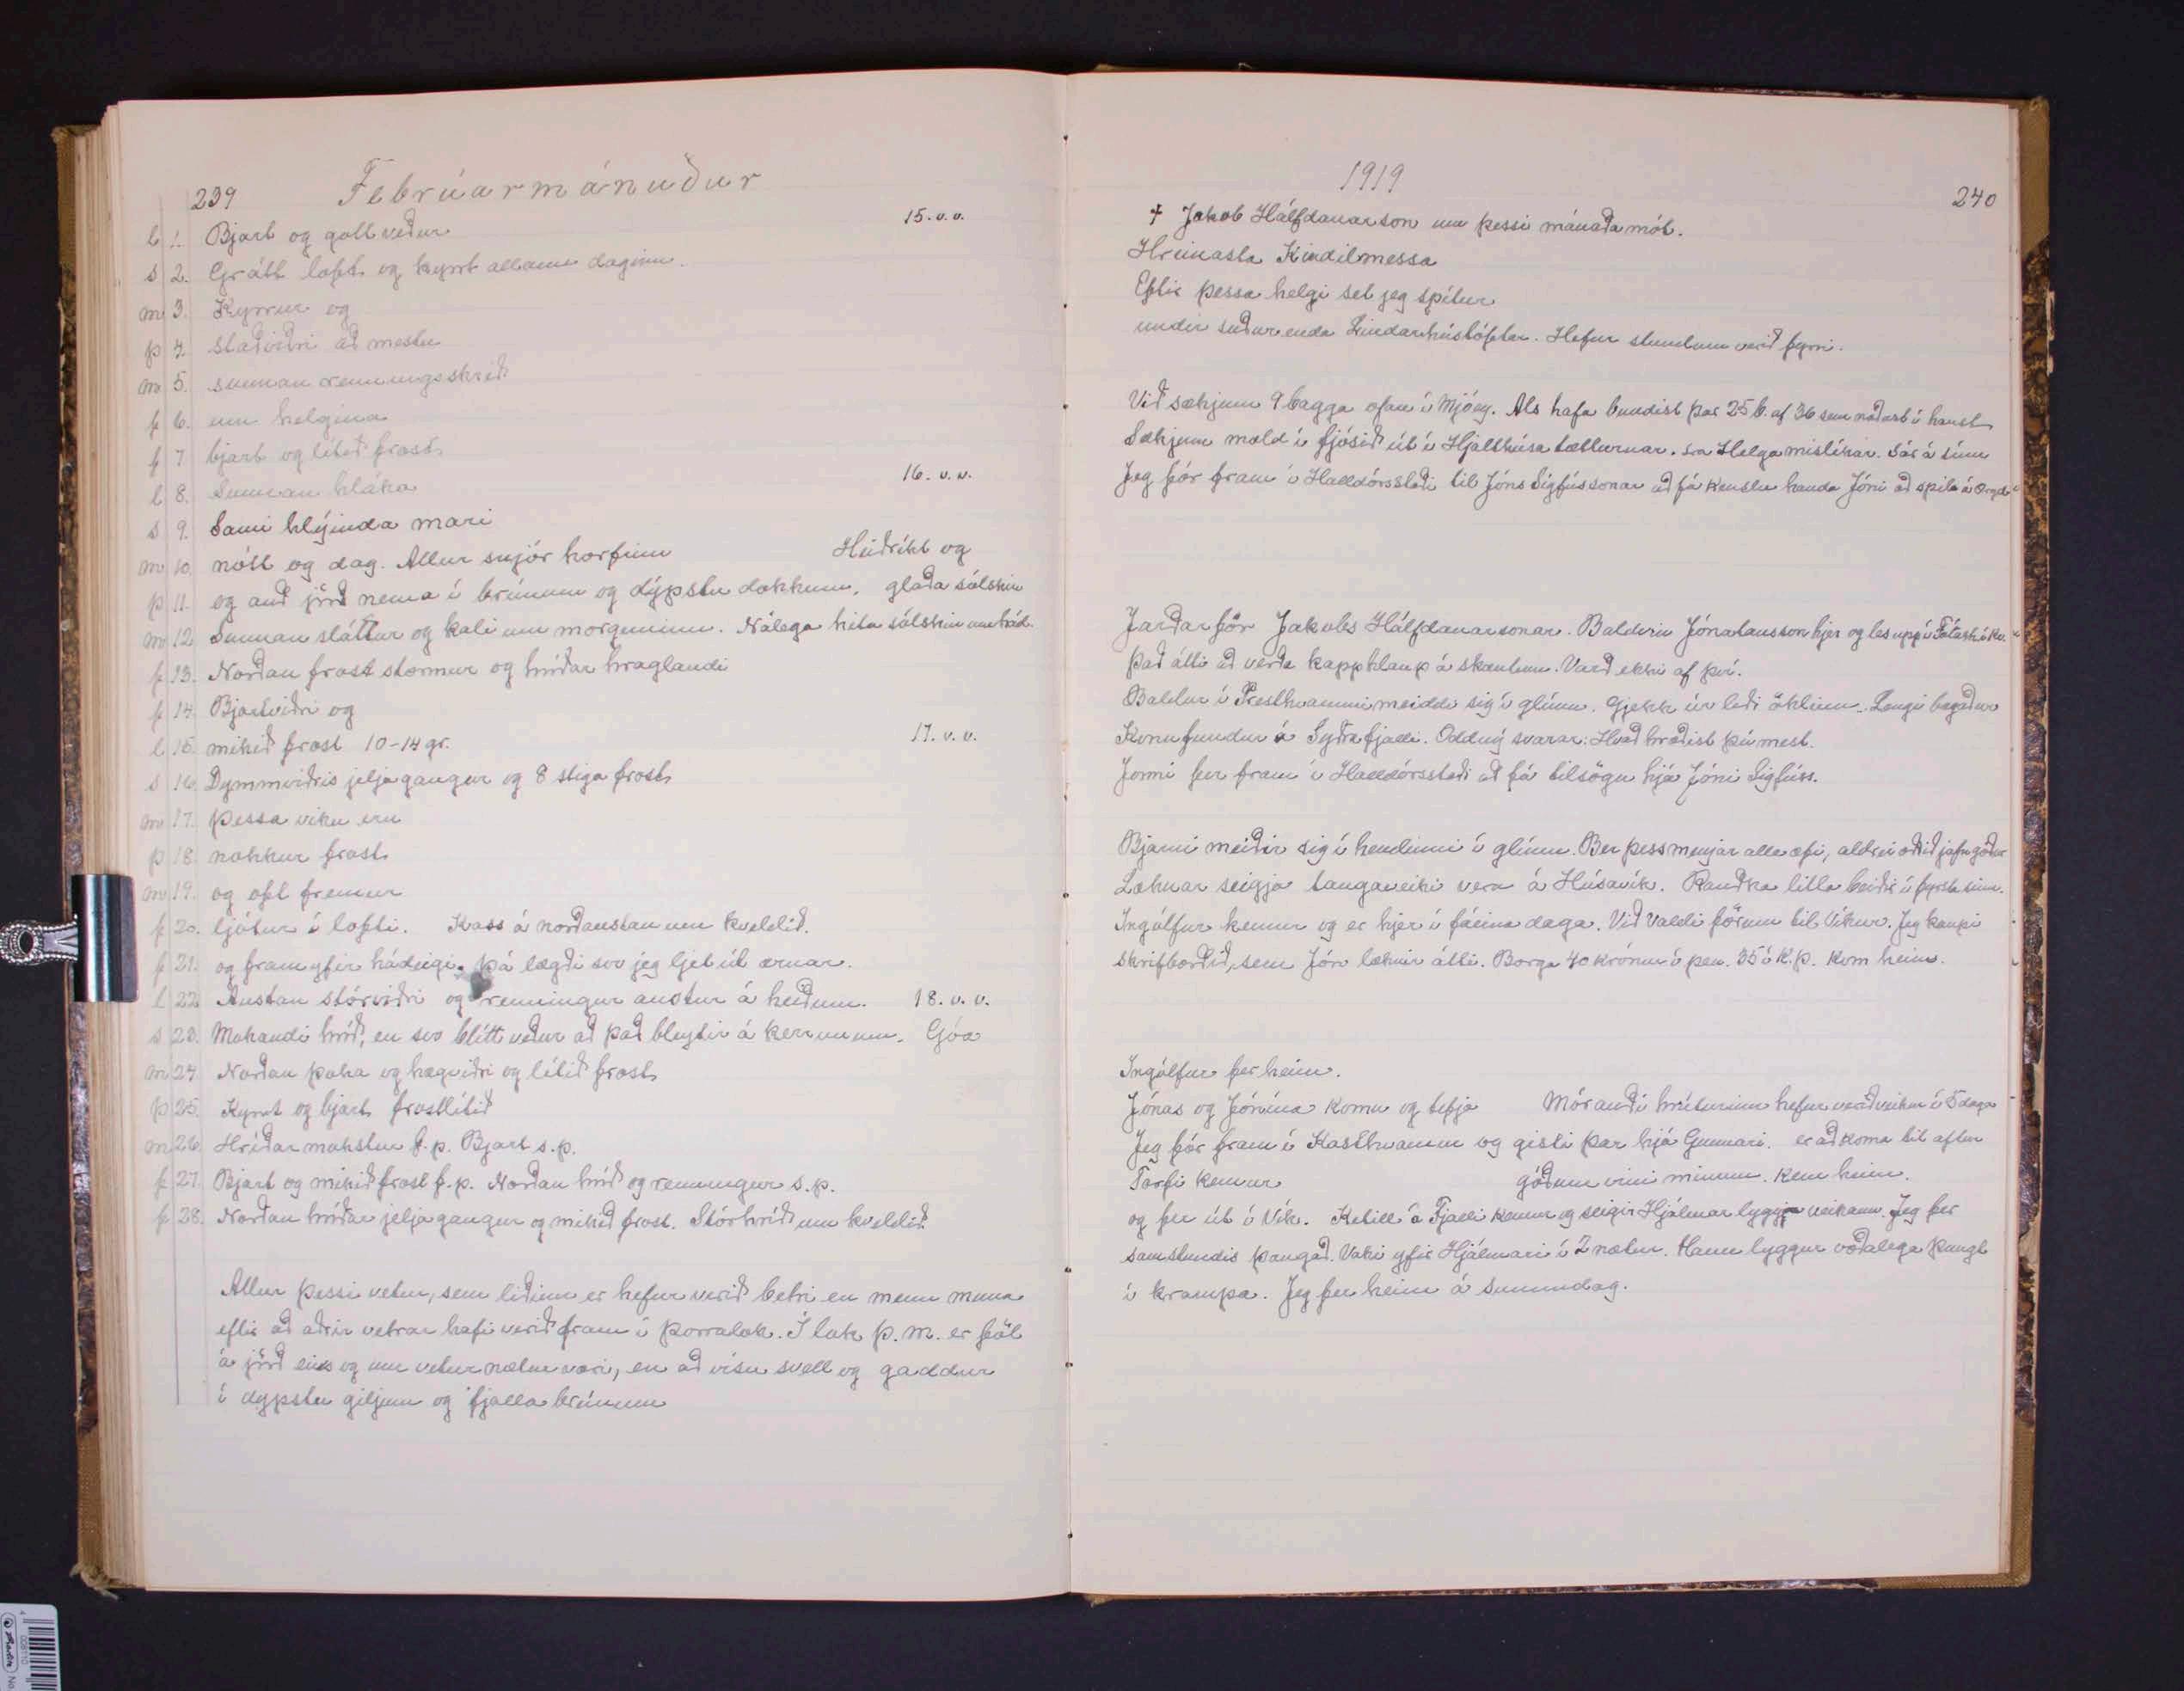 239 Febrúarmánuður
l 1. Bjart og gott veður 15. v. v.
s 2. Grátt loft og kyrt allann daginn.
m 3. Kyrrur og
þ 4. staðviðri að mestu
m 5. sunnan rennings skrið
f 6. um helgina
f 7. bjart og lítið frost
l 8. Sunnan hláka 16. v. v.
s 9. Sami hlýinda mari
m 10. nótt og dag. Allur snjór horfinn Heiðríkt og
þ 11. og auð jörð nema í brúnum og dýpstu dokkum. glaða sólskin
m 12. Sunnan sláttur og kali um morguninn. Nálega hita sólskin um hád.
f 13. Norðan frost stormur og hríðar hraglandi
f 14. Bjartviðri og
l 15. mikið frost 10-14 gr. 17. v. v.
s 16. Dymmviðris jeljagangur og 8 stiga frost
m 17. þessa viku eru
þ 18. nokkur frost
m 19. og oft fremur
f 20. ljótur í lofti. Hass á norðaustan um kveldið.
f 21. og fram yfir hádeigi. þá lægði svo jeg ljet út ærnar.
l 22. Austan stórviðri og renningur austur á heiðum. 18. v. v.
s 23. Mokandi hríð, en svo blítt veður að það bleytir á kerrunum. Góa
m 24. Norðan þoka og hægviðri og lítið frost
þ 25. Kyrt og bjart frostlítið
m 26. Hríðar mokstur f. p. Bjart s. p.
f 27. Bjart og mikið frost f. p. Norðan hríð og renningur s. p.
f 28. Norðan hríðar jeljagangur og mikið frost. Stórhríð um kveldið
Allur þessi vetur, sem liðinn er hefur verið betri en menn muna
eftir að aðrir vetrar hafi verið fram í þorralok. Í lok þ. m. er föl
á jörð eins og um vetur nætur væri, en að vísu svell og gaddur
í dypstu giljum og fjalla brúnum
1919 240
+ Jakob Hálfdanarson um þessi mánaða mót.
Hreinasta Kindilmessa
Eftir þessa helgi set jeg spítur
undir suður enda Lindarhústóftar. Hefur stundum verið fyrri.
Við sækjum 9 bagga ofan í Mjóey. Als hafa bundist þar 25 b. af 36 sem náðust í haust
Sækjum mold í fjósið út í Hjallhúsa tætturnar. sra Helga mislíkar. Sár á sinn
Jeg fór fram í Halldórsstaði til Jóns Sigfússonar að fá kenslu handa Jóni að spila á Orgel
Jarðarför Jakobs Hálfdanarsonar. Baldvin Jónatansson hjer og les upp í Fátæk. ko.
Það átti að verða kapphlaup á skautum. Varð ekki af því.
Baldur í Presthvammi meiddi sig í glímu. Gjekk úr liði öklinn. Lengi bagaður
Konu fundur á Syðrafjalli. Oddný svarar: Hvað hræðist þú mest.
Jonni fer fram í Halldórsstaði að fá tilsögn hjá Jóni Sigfúss.
Bjarni meiðir sig í hendinni í glímu. Ber þess menjar alla æfi, aldrei orðið jafn góður
Læknar seigja taugaveiki vera á Húsavík. Rauðka litla beidir í fyrsta sinn.
Ingólfur kemur og er hjer í fáeina daga. Við Valdi förum til Víkur. Jeg kaupi
skrifborðið, sem Jón læknir átti. Borga 40 krónur í pen. 35 í K.þ. kom heim.
Ingólfur fer heim.
Jónas og Jónína komu og tefja Mórauði hrúturinn hefur verið veikur í 5 daga
Jeg fór fram í Kasthvamm og gisti þar hjá Gunnari. er að koma til aftur
Torfi kemur góðum vini mínum. kem heim.
og fer út í Vík. Ketill á Fjalli kemur og seigir Hjálmar lyggja veikann. Jeg fer
samstundis þangað. Vaki yfir Hjálmari í 2 nætur. Hann lyggur voðalega þungt
í krampa. Jeg fer heim á sunnudag.